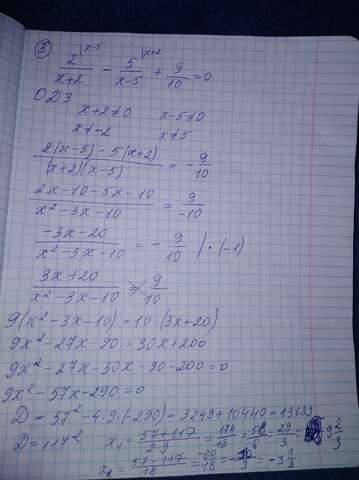 ③ 2 |x-5 / x+2 - 5 |x+2 / x-5 + 9/10 = 0
ОДЗ
x+2≠0 x-5≠0
x≠-2 x≠5
2(x-5) - 5(x+2) / (x+2)(x-5) = - 9/10
2x-10-5x-10 / x²-3x-10 = 9/-10
-3x-20 / x²-3x-10 = - 9/10 | · (-1)
3x+20 / x²-3x-10 = 9/10
9(x²-3x-10) = 10·(3x+20)
9x²-27x-90 = 30x+200
9x²-27x-30x-90-200=0
9x²-57x-290=0
D = 57²-4·9·(-290) = 3249+10440 = 13689
D = 117² x₁ = 57+117 / 2·9 = 174/18 = 58/6 = 29/3 = 9 2/3
x₂ = 57-117 / 18 = -60/18 = -10/3 = -3 1/3